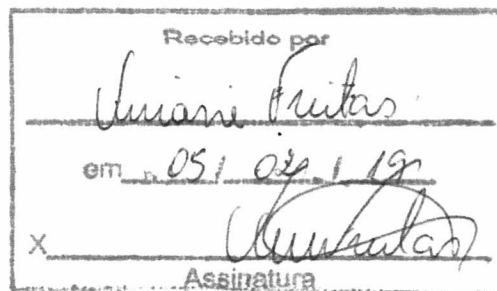 Recebido por
Viviani Freitas
em 05 / 02 / 19
X
Assinatura